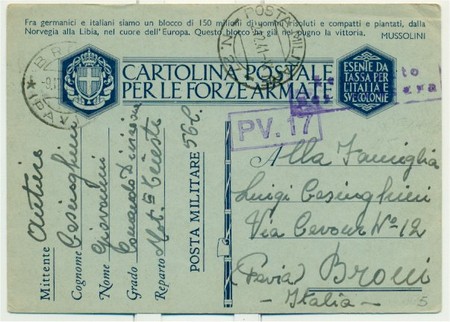 Fra germanici e italiani siamo un blocco di 150 milioni di uomini risoluti e compatti e piantati, dalla
Norvegia alla Libia, nel cuore dell'Europa. Questo blocco ha già nel pugno la vittoria.
MUSSOLINI
POSTA MILI
CARTOLINA POSTALE
PER LE FORZE ARMATE
ESENTE DA
TASSA PER
L'ITALIA E
SUE COLONIE
PV. 17
Mittente
Cognome Cesinghini
Nome Giovanni
Grado
Reparto Mot. Trieste
POSTA MILITARE 56
Alla Famiglia
Luigi Cesinghini
Via Cavour N° 12
Pavia Broni
- Italia -
5